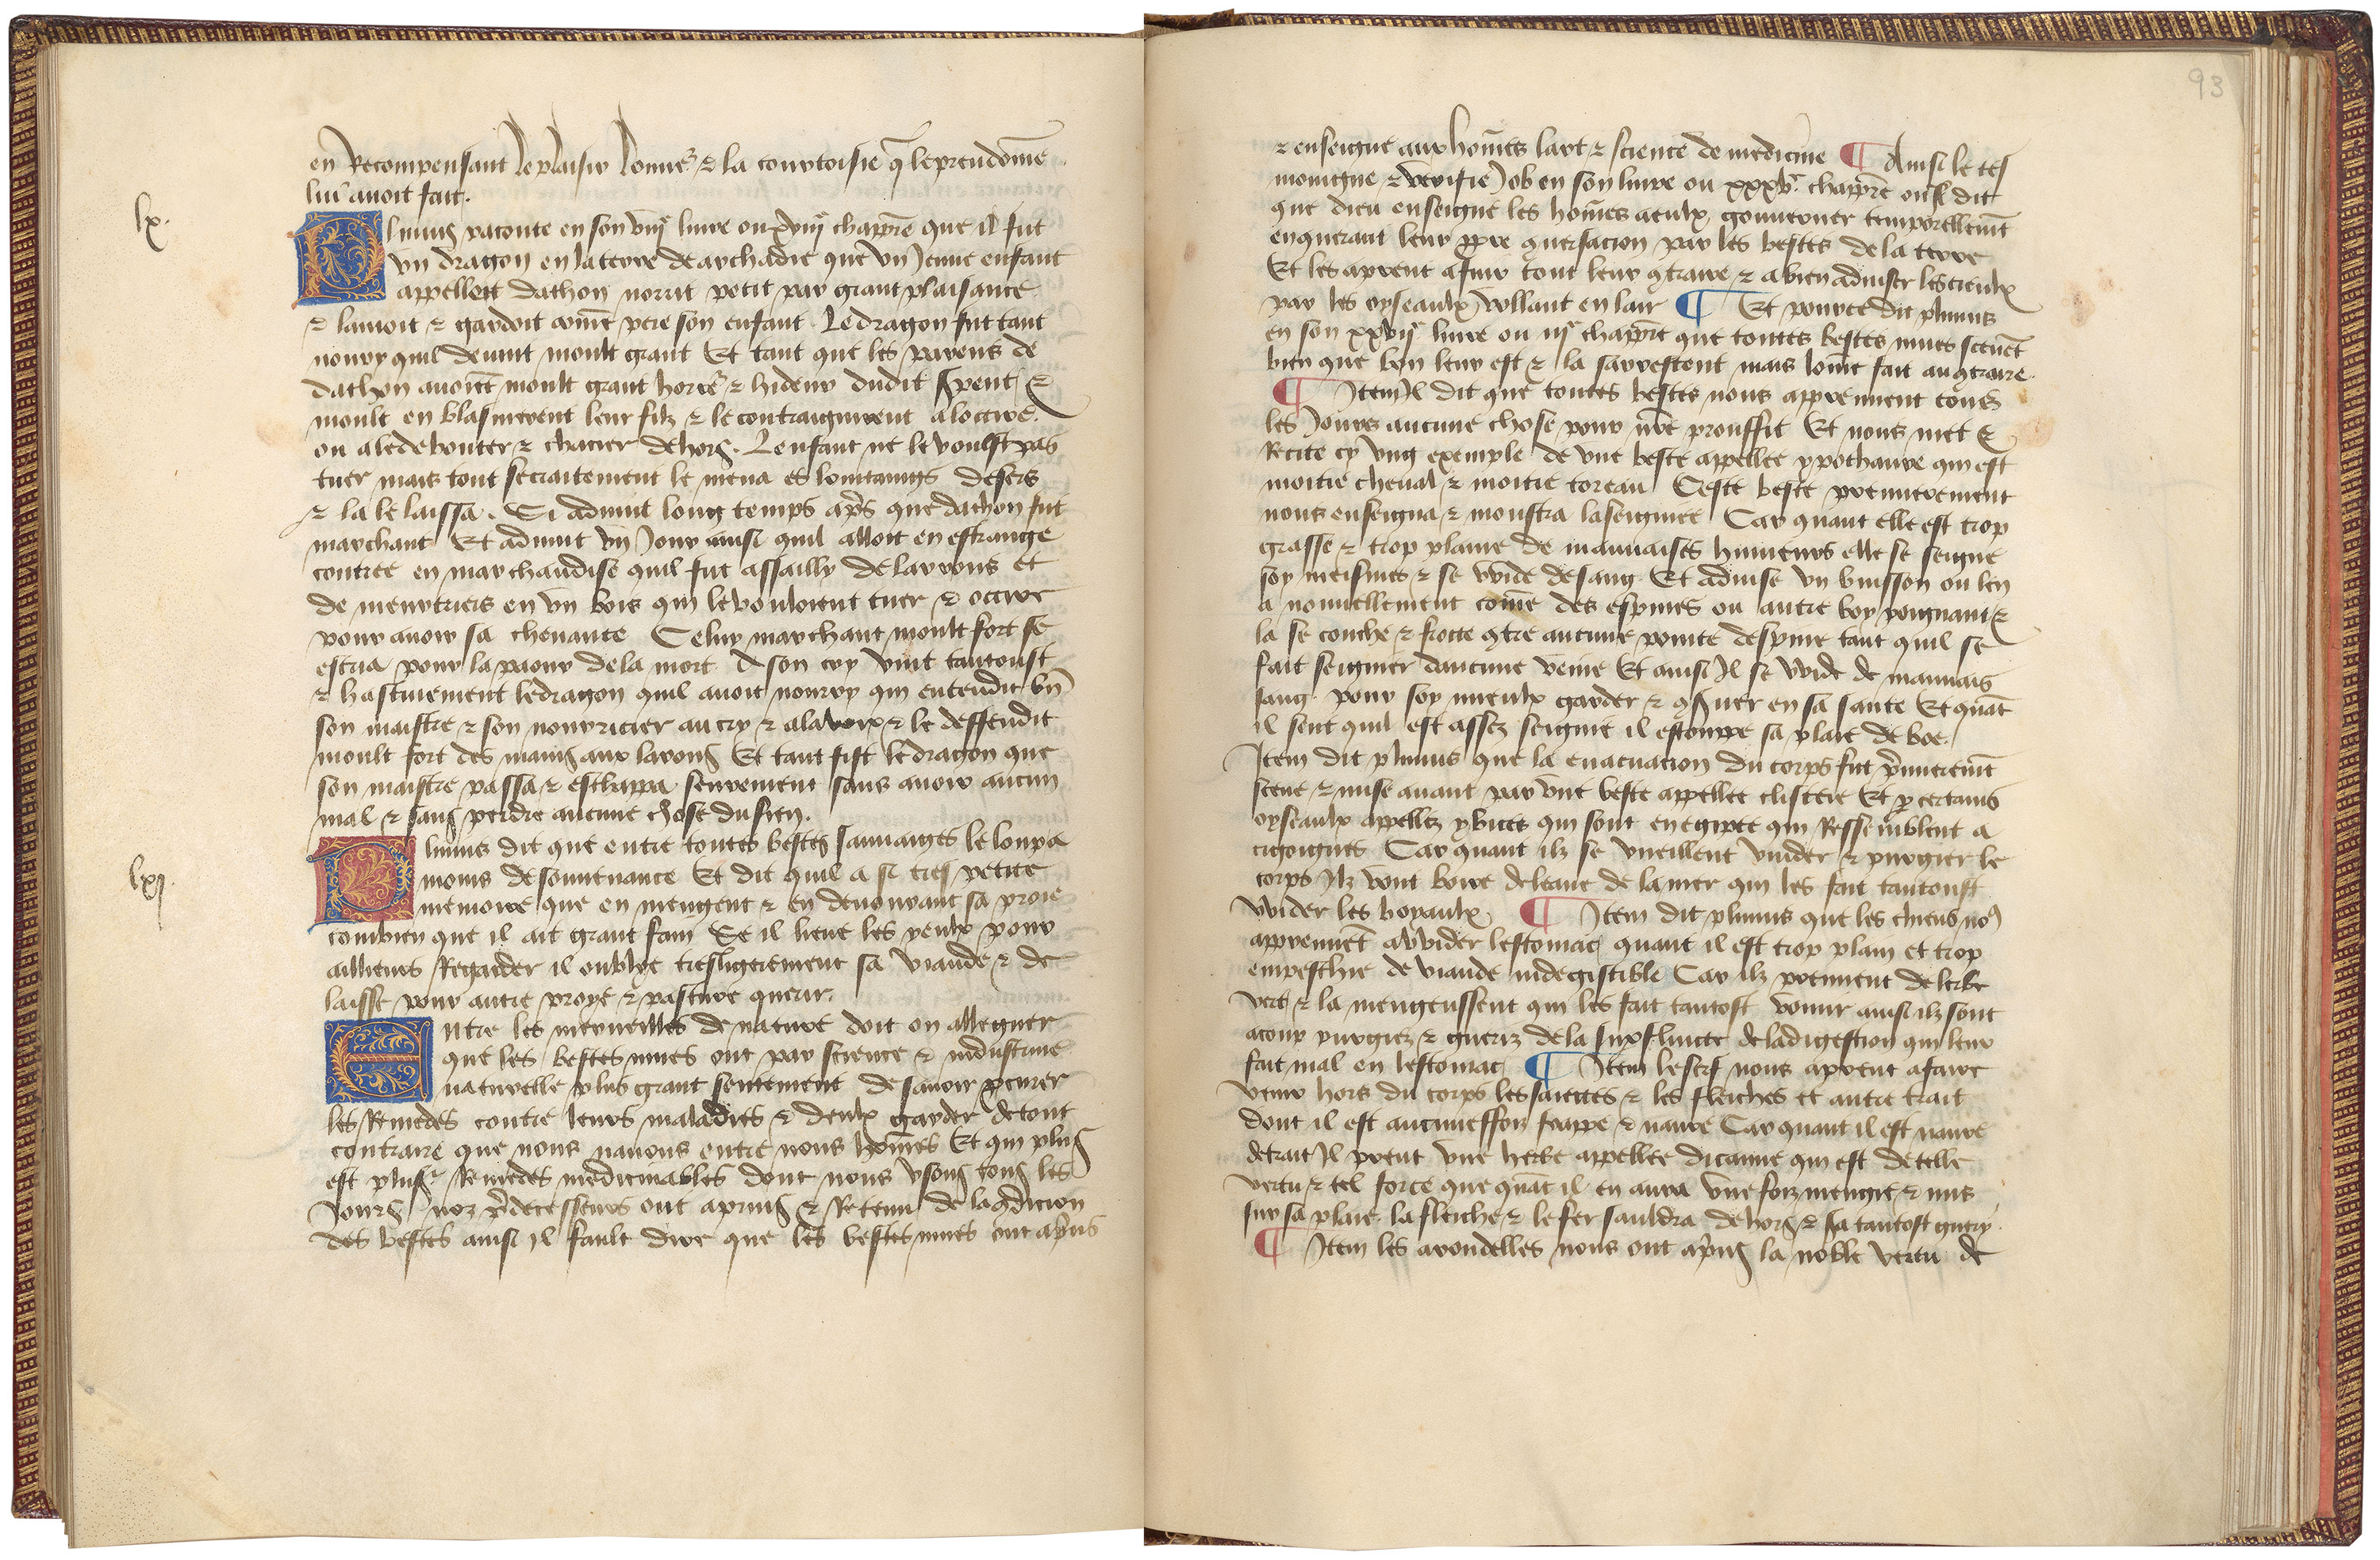 en Recompensant le plaisir bonne, ⁊ la courtoisie q̃ le preudõme
lui avoit fait.
lx.
Plinius raconte en son viijᵉ livre ou xviijᵉ chappr̃e que il fut
vn dragon en la terre de archadie que vn Jeune enfant
appellett dathon norrit petit par grant plaisance
⁊ lamoit ⁊ gardoit cõme pere son enfant. Le dragon fut tant
nourry quil devint moult grant Et tant que les parens de
dathon avoiẽt moult grant horre᷑ ⁊ hideur dudit s̃pent ⁊
moult en blasmerent leur filz ⁊ le contraignirent a loccire
ou a le debouter ⁊ chacier dehors. Lenfant ne le voulst pas
tuer mais tout secraitement le mena es lointaings desers
⁊ la le laissa. Si advint long temps ap̃s que dathon fut
marchant Et advint vn Jour ainsi quil alloit en estrange
contree en marchandise quil fut assailly de larrons et
de meurtriers en vn bois qui le vouloient tuer ⁊ occire
pour avoir sa chevance Celuy marchant moult fort se
escria pour la paour de la mort A son cry vint tantoust
⁊ hastivement le dragon quil avoit nourry qui entendit bñ
son maistre ⁊ son nourricier au cry ⁊ a la voix ⁊ le deffendit
moult fort des mains aux larons Et tant fist le dragon que
son maistre passa ⁊ eschappa seurement sans avoir aucun
mal ⁊ sans perdre aucune chose du sien.
lxj.
Plinius dit que entre toutes bestes sauvaiges le loup a
moins de souvenance Et dit quil a si tres petite
memoire que en mengent ⁊ en devourant sa proie
combien que il ait grant fain Se il lieve les yeulx pour
aillieurs Regarder il oublye treslegierement sa viande ⁊ de
laisse pour autre proye ⁊ pasture querir.
Entre les merveilles de nature doit on alleguer
que les bestes mues ont par science ⁊ industrine
naturelle plus grant sentement de savoir p̃curer
les Remedes contre leurs maladies ⁊ deulx garder de tout
contraire que nous navons entre nous hõmes Et qui plus
est plusᵉ᷑s Remedes medicinables dont nous vsons tous les
Jours noz p̃decesseurs ont aprins ⁊ Retenu de la 9dicion
des bestes ainsi il fault dire que les bestes mues ont ap̃ns
93
⁊ enseigne aux hõmes lart ⁊ science de medicine ¶ Ainsi le tes
moingne ⁊ verifie Job en son livre ou xxxvᵉ chappr̃e ou il dit
que dieu enseigne les hõmes a eulx gouverner temporellemẽt
enquerant leur pp̃re 9versacion par les bestes de la terre
Et les aprent a fuir tout leur 9traire ⁊ a bien adviser les cieulx
par les oyseaulx vollant en lair ¶ Et pource dit plinius
en son xxviijᵉ livre ou iijᵉ chapp̃re que toutes bestes mues scevẽt
bien que bon leur est ⁊ la sarrestent mais lõme fait au 9traire.
¶ Item Il dit que toutes bestes nous apprennent tous
les Jours aucune chose pour nr̃e prouffit Et nous met ⁊
Recite cy vng exemple de vne beste appellee ypothaure qui est
moitie cheval ⁊ moitie toreau Ceste beste premierement
nous enseigna ⁊ monstra la seignee Car quant elle est trop
grasse ⁊ trop plaine de mauvaises humeurs elle se seigne
soy meismes ⁊ se wide de sang Et advise vn buisson ou len
a nouvellement cõme des espines ou autre boy poingnant ⁊
la se couche ⁊ frotte 9tre aucune pointe despine tant quil se
fait seignier daucune veine Et ainsi Il se wide de mauvais
sang pour soy mieulx garder ⁊ 9s̃ver en sa sante Et quãt
il sent quil est assez seignie il estouppe sa plaie de boe.
Item dit plinius que la evacuacion du corps fut p̃mieremẽt
sceue ⁊ mise avant par vne beste appellee clistere Et p̱ certains
oyseaulx appellez ybices qui sont en egipte qui Ressemblent a
cigoignes Car quant ilz se vueillent vuider ⁊ purgier le
corps Ilz vont boire de leaue de la mer qui les fait tantoust
wider les boyaulx ¶ Item dit plinius que les chiens no⁹
apprennẽt a wider lestomac quant il est trop plain et trop
empeschie de viande indegistible Car ilz prennent de lerbe
verte ⁊ la mengeussent qui les fait tantost vomir ainsi ilz sont
acoup purgiez ⁊ gueriz de la sup̱fluite de ladigestion qui leur
fait mal en lestomac ¶ Item le serf nous aprent a faire
venir hors du corps les saiettes ⁊ les fleiches et autre trait
dont il est aucuneffoiz frappe ⁊ navre Car quant il est navre
de trait Il prent vne herbe appellee dicanne qui est de telle
vertu ⁊ tel force que quãt il en aura vne foiz mengie ⁊ mis
sur sa plaie la fleiche ⁊ le fer sauldra dehors ⁊ s̃a tantost guery.
¶ Item les arondelles nous ont ap̃ns la noble vertu de